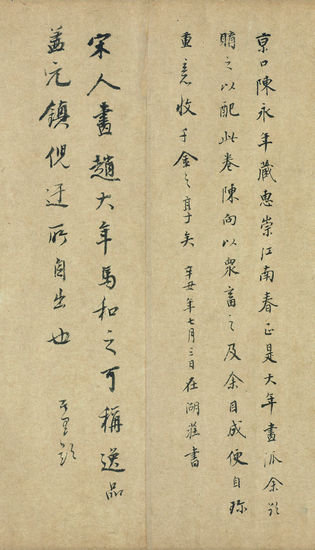 京口陳永年藏惠崇江南春正是大年畫派余欲
購之以配此卷陳向以眾畜之及余目成便自珍
重竟收千金之享矣 辛丑年七月三日在湖莊書
宋人畫趙大年馬和之可稱逸品
蓋元鎮倪迂所自出也 其昌題